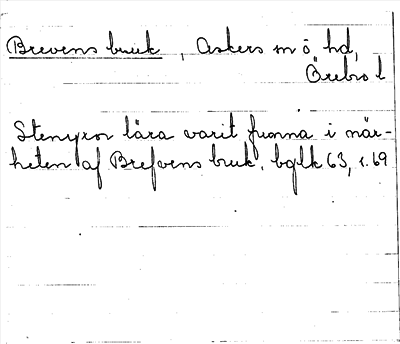 Brevens bruk, Askers m ö hd,
Örebro l
Stenyxor lära varit funna i när-
heten af Brefvens bruk. bglk 63, s. 69